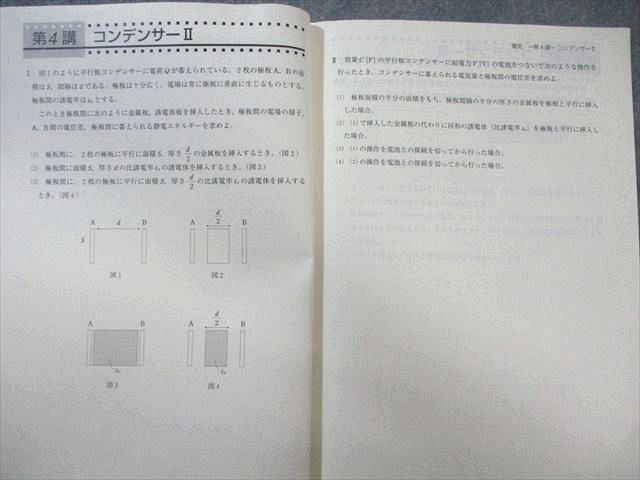 第4講 コンデンサーⅡ
Ⅰ 図1のように平行板コンデンサーに電荷Qが蓄えられている。2枚の極板A, Bの面
積はS, 間隔はdである。極板は十分広く, 電場は常に極板に垂直に生じるものとする。
極板間の誘電率はε₀とする。
このとき極板間に次のように金属板, 誘電体板を挿入したとき, 極板間の電場の様子,
A, B間の電位差, 極板間に蓄えられる静電エネルギーを求めよ。
(1) 極板間に, 2枚の極板に平行に面積S, 厚さd/2の金属板を挿入するとき。(図2)
(2) 極板間に面積S, 厚さdの比誘電率εᵣの誘電体を挿入するとき。(図3)
(3) 極板間に, 2枚の極板に平行に面積S, 厚さd/2の比誘電率εᵣの誘電体を挿入すると
き。(図4)
A d B
S
図1
d/2
図2
A B
εᵣ
図3
A d/2 B
εᵣ
図4
電気 −第4講− コンデンサーⅡ
Ⅱ 容量C[F]の平行板コンデンサーに起電力V[V]の電池をつないで次のような操作を
行ったとき, コンデンサーに蓄えられる電気量と極板間の電位差を求めよ。
(1) 極板面積の半分の面積をもち, 極板間隔の半分の厚さの金属板を極板と平行に挿入
した場合。
(2) (1)で挿入した金属板の代わりに同形の誘電体(比誘電率εᵣ)を極板と平行に挿入し
た場合。
(3) (1)の操作を電池との接続を切ってから行った場合。
(4) (2)の操作を電池との接続を切ってから行った場合。